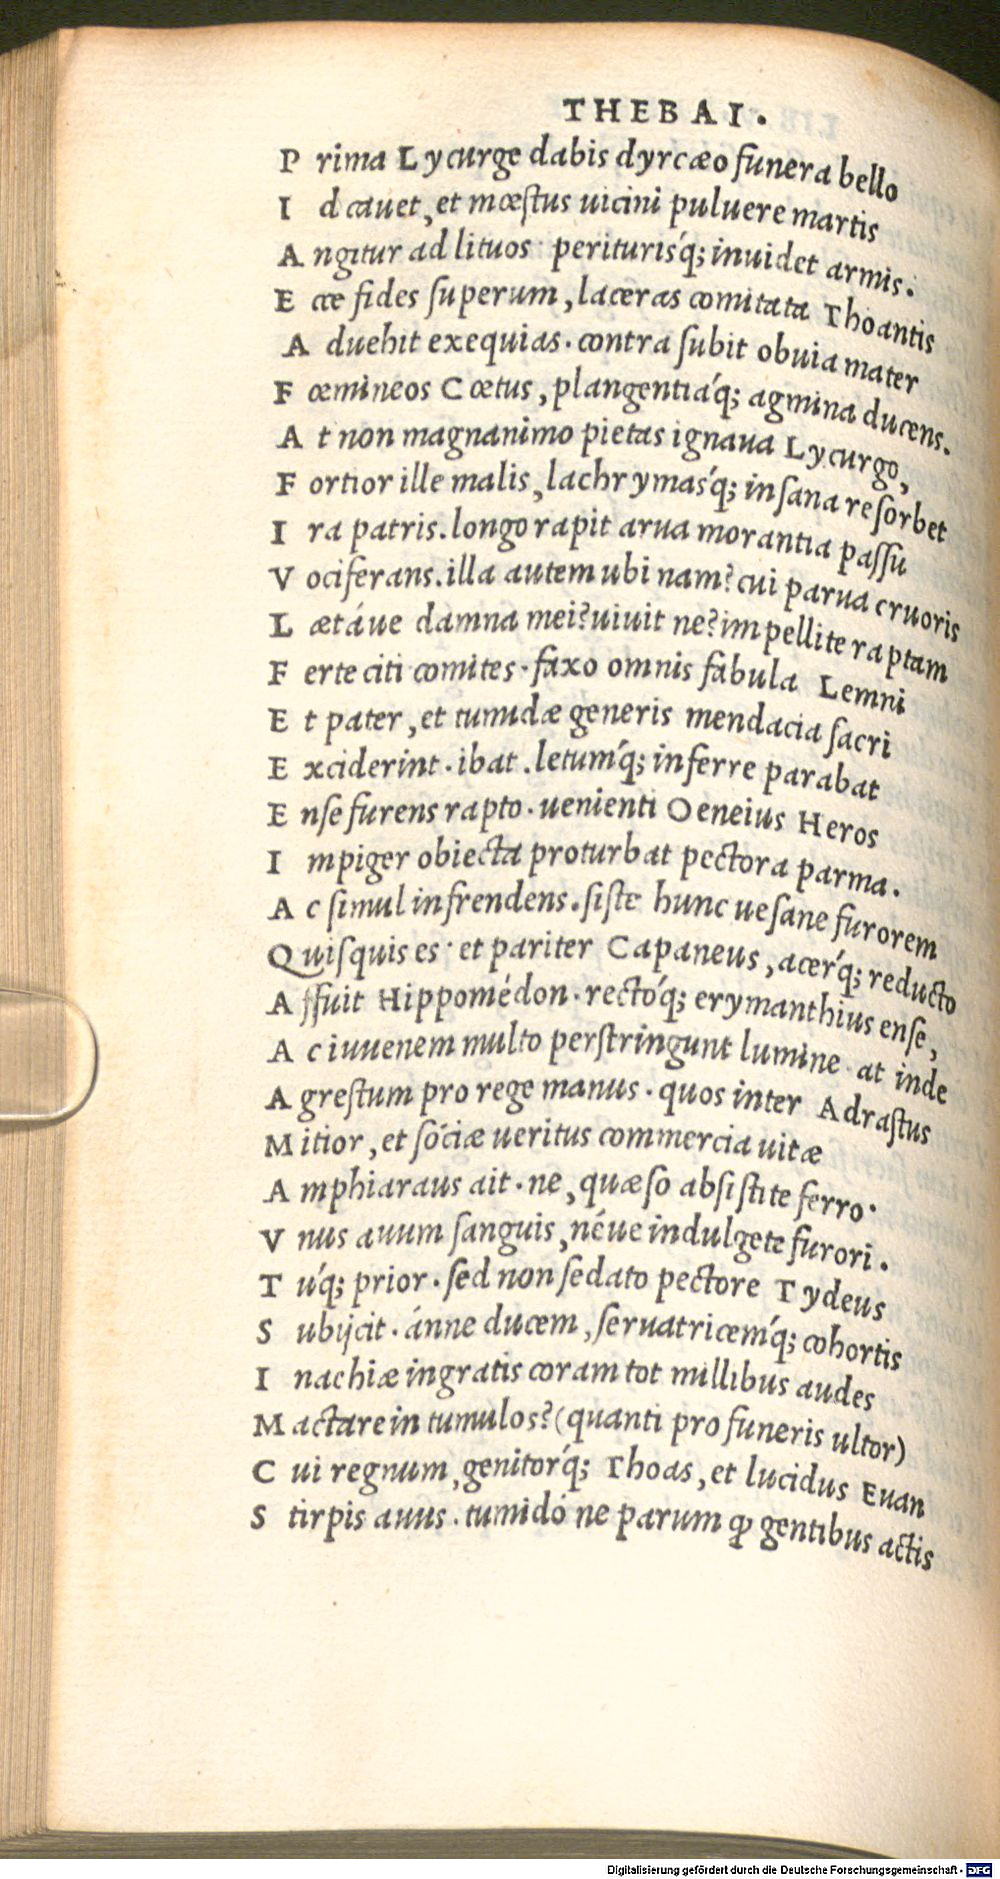 THEBAI.
P rima Lycurge dabis dyrcæo funera bello
I d cauet, et mœstus uicini puluere martis
A ngitur ad lituos· periturisq́; inuidet armis.
E cœ fides superum, laceras comitata Thoantis
A duehit exequias. contra subit obuia mater
F œmineos Cœtus, plangentiáq; agmina ducens.
A t non magnanimo pietas ignaua Lycurgo,
F ortior ille malis, lachrymasq́; insana resorbet
I ra patris. longo rapit arua morantia passu
V ociferans. illa autem ubi nam? cui parua cruoris
L ætáue damna mei? uiuit ne? impellite raptam
F erte citi comites. faxo omnis fabula Lemni
E t pater, et tumidæ generis mendacia sacri
E xciderint. ibat. letumq́; inferre parabat
E nse furens rapto. uenienti Oeneius Heros
I mpiger obiecta proturbat pectora parma.
A c simul infrendens. siste hunc uesane furorem
Q uisquis es· et pariter Capaneus, acerq́; reducto
A ffuit Hippomédon. rectóq́; erymanthius ense,
A c iuuenem multo perstringunt lumine· at inde
A grestum pro rege manus. quos inter Adrastus
M itior, et sóciæ ueritus commercia uitæ
A mphiaraus ait. ne, quæso absistite ferro·
V nus auum sanguis, néue indulgete furori.
T úq; prior. sed non sedato pectore Tydeus
S ubijcit. ánne ducem, seruatricemq́; cohortis
I nachiæ ingratis coram tot millibus audes
M actare in tumulos? (quanti pro funeris ultor)
C ui regnum, genitorq́; Thoas, et lucidus Euan
S tirpis auus. tumidó ne parum ꝙ gentibus actis
Digitalisierung gefördert durch die Deutsche Forschungsgemeinschaft - DFG